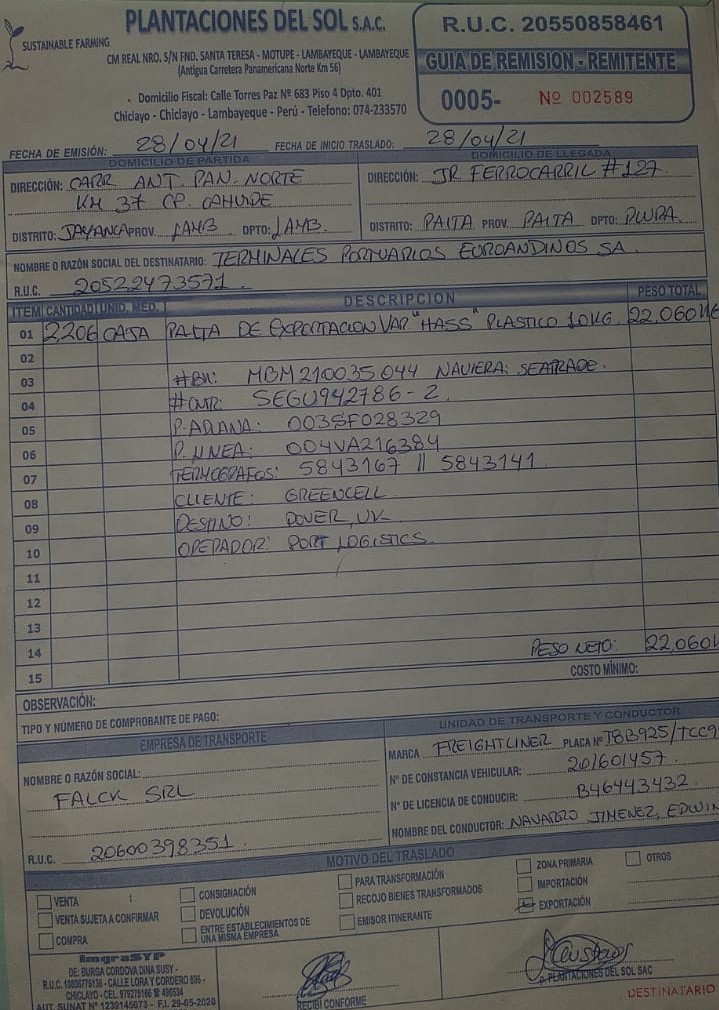 SUSTAINABLE FARMING
PLANTACIONES DEL SOL S.A.C.
CM REAL NRO. S/N FND. SANTA TERESA - MOTUPE - LAMBAYEQUE - LAMBAYEQUE
(Antigua Carretera Panamericana Norte Km 56)
. Domicilio Fiscal: Calle Torres Paz Nº 683 Piso 4 Dpto. 401
Chiclayo - Chiclayo - Lambayeque - Perú - Telefono: 074-233570
R.U.C. 20550858461
GUIA DE REMISION - REMITENTE
0005- Nº 002589
FECHA DE EMISIÓN: 28/04/21 FECHA DE INICIO TRASLADO: 28/04/21
DOMICILIO DE PARTIDA
DIRECCIÓN: CARR ANT. PAN. NORTE
KM 37 CP. CAHUIDE
DISTRITO: JAYANCA PROV. LAMB DPTO: LAMB.
DOMICILIO DE LLEGADA
DIRECCIÓN: JR FERROCARRIL #127.
DISTRITO: PAITA PROV. PAITA DPTO: PIURA.
NOMBRE O RAZÓN SOCIAL DEL DESTINATARIO: TERMINALES PORTUARIOS EUROANDINOS SA.
R.U.C. 20522473571.
ITEM CANTIDAD UNID. MED. DESCRIPCION PESO TOTAL
01 2206 CAJA PALTA DE EXPORTACION VAR "HASS" PLASTICO 10KG. 22,060KG
02
03 #BK: MBM210035044 NAVIERA: SEATRADE.
04 #CNTR: SEGU942786-2.
05 P. ADUANA: 003SF028329
06 P. LINEA: 004VA216384
07 TERMOGRAFOS: 5843167 || 5843141
08 CLIENTE: GREENCELL
09 DESTINO: DOVER, UK
10 OPERADOR: PORT LOGISTICS.
11
12
13
14 PESO NETO: 22,060K
15 COSTO MÍNIMO:
OBSERVACIÓN:
TIPO Y NÚMERO DE COMPROBANTE DE PAGO:
EMPRESA DE TRANSPORTE
NOMBRE O RAZÓN SOCIAL:
FALCK SRL
R.U.C. 20600398351.
UNIDAD DE TRANSPORTE Y CONDUCTOR
MARCA FREIGHTLINER PLACA Nº T8B925/TCC9
Nº DE CONSTANCIA VEHICULAR: 201601457.
Nº DE LICENCIA DE CONDUCIR: B46443432
NOMBRE DEL CONDUCTOR: NAVARRO JIMENEZ, EDWIN
MOTIVO DEL TRASLADO
VENTA
VENTA SUJETA A CONFIRMAR
COMPRA
CONSIGNACIÓN
DEVOLUCIÓN
ENTRE ESTABLECIMIENTOS DE
UNA MISMA EMPRESA
PARA TRANSFORMACIÓN
RECOJO BIENES TRANSFORMADOS
EMISOR ITINERANTE
ZONA PRIMARIA
IMPORTACIÓN
EXPORTACIÓN
OTROS
ImgraSYP
DE: BURGA CORDOVA DINA SUSY -
CALLE LORA Y CORDERO
AUT. SUNAT Nº 1239145073 - F.I. 29-05-2020
RECIBÍ CONFORME
p. PLANTACIONES DEL SOL SAC
DESTINATARIO